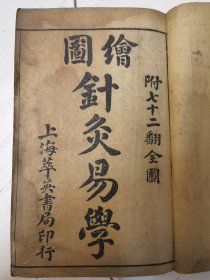 繪圖
針灸易學
附七十二翻全圖
上海萃英書局印行